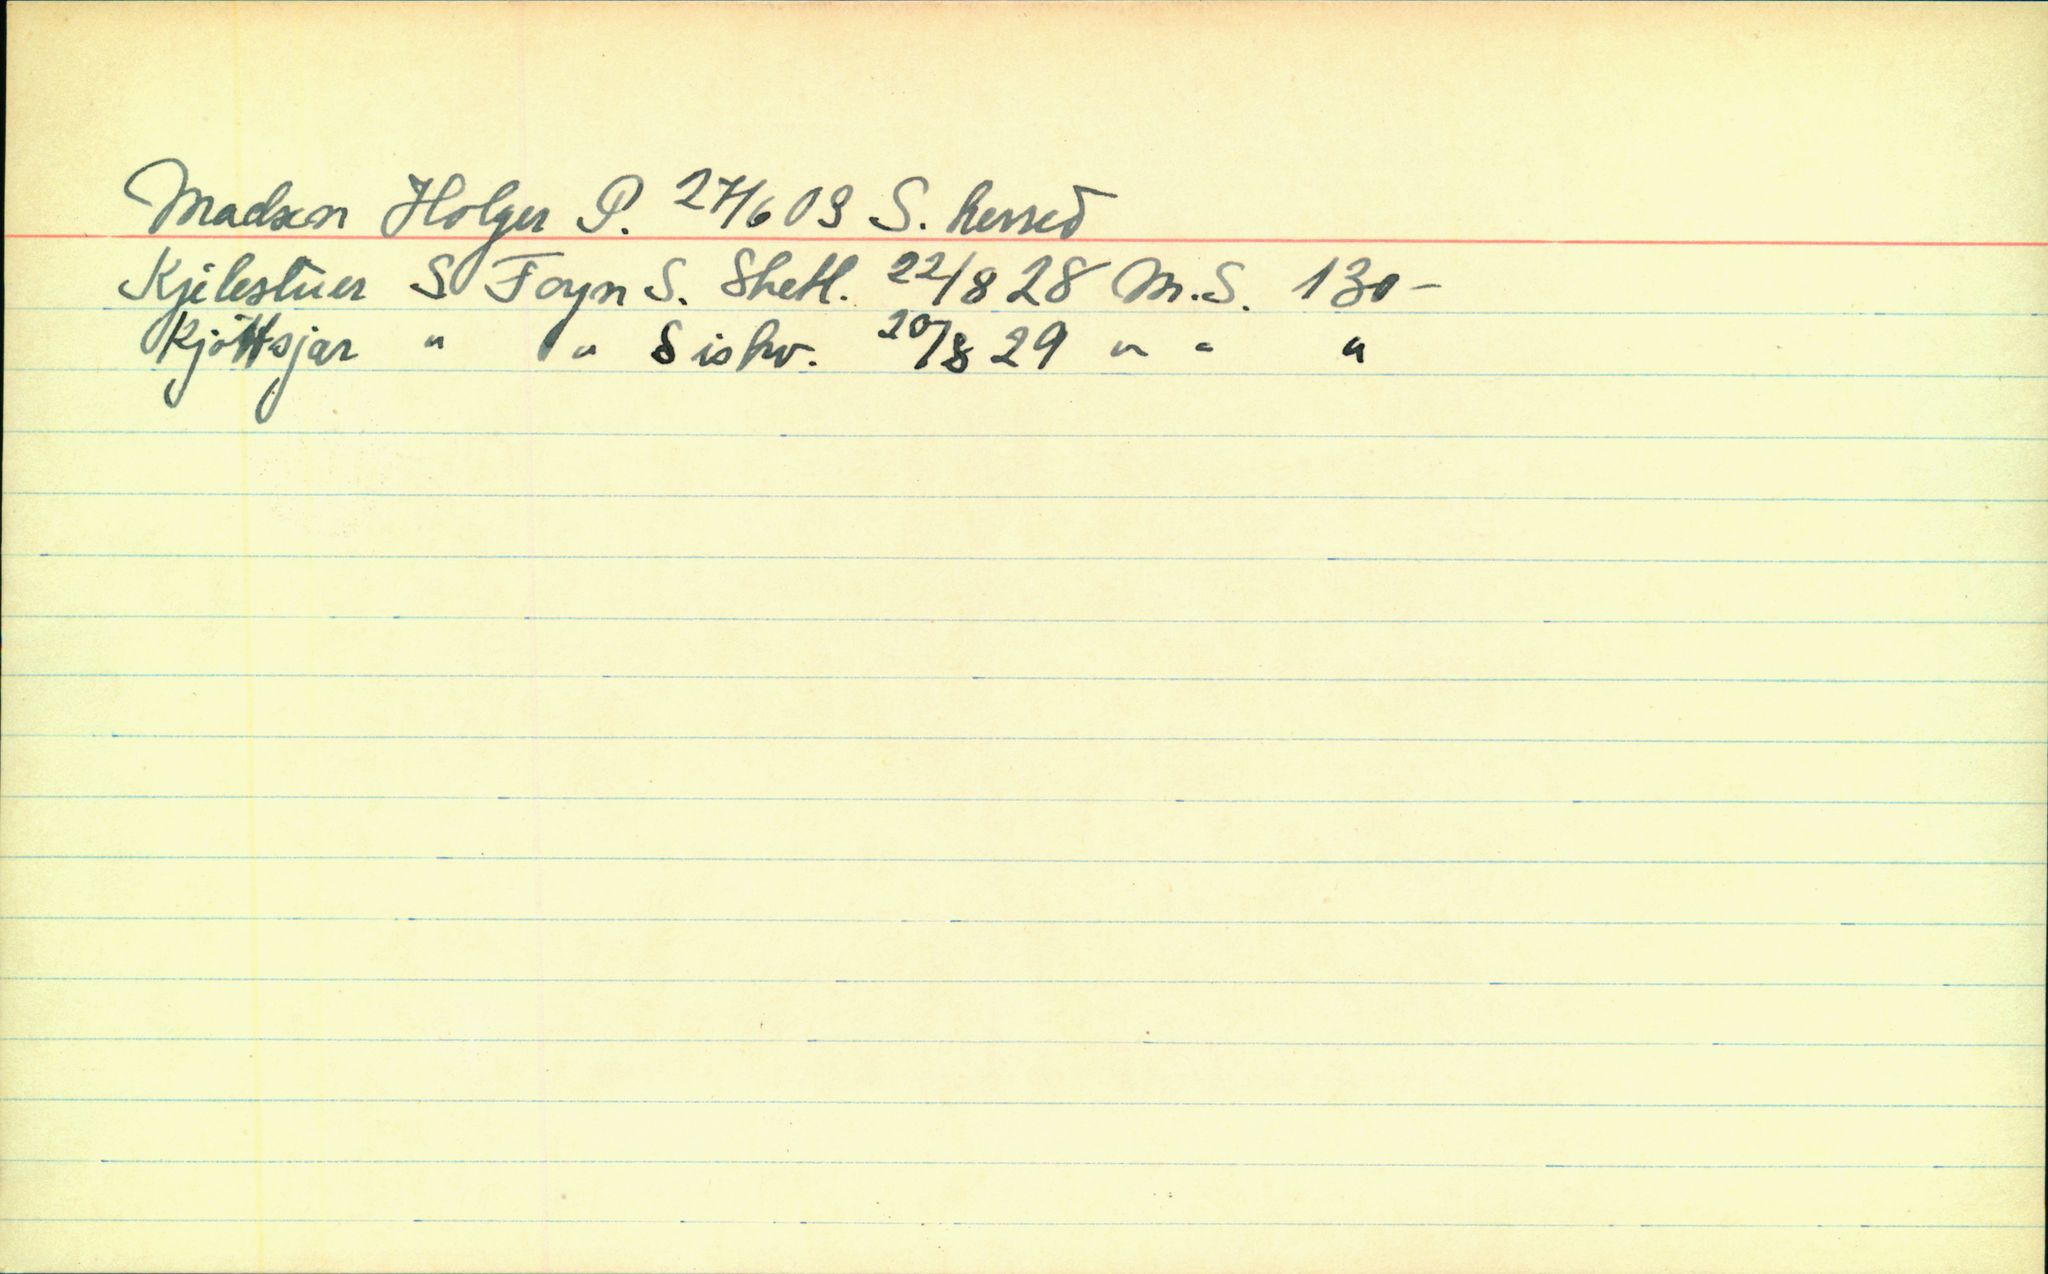 Madsen Holger P. 27/6 09 S. herred
Kjilestuer S Foyn S. Shetl. 22/8 28 M.S. 130-
Kjöttsjar " " S iskv. 20/8 29 " " "